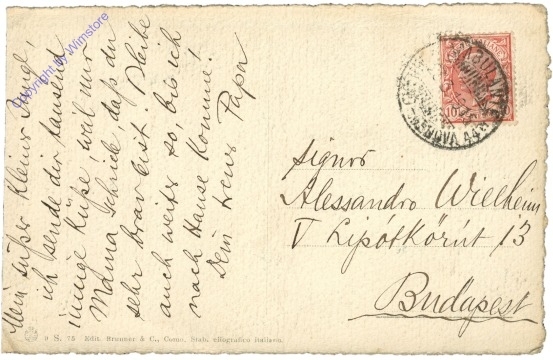 Mein süßer kleiner Junge,
ich sende dir tausend
innige Küße, weil mir
Mama schrieb, daß du
sehr brav bist. Bleibe
auch weiter so, bis ich
nach Hause komme!
Dein treuer Papa
Copyright by Wimstore
10
GENOVA
Signor
Alessandro Wielheim
V Lipótkörút 13
Budapest
9 S. 75 Edit. Brunner & C., Como. Stab. eliografico italiano.